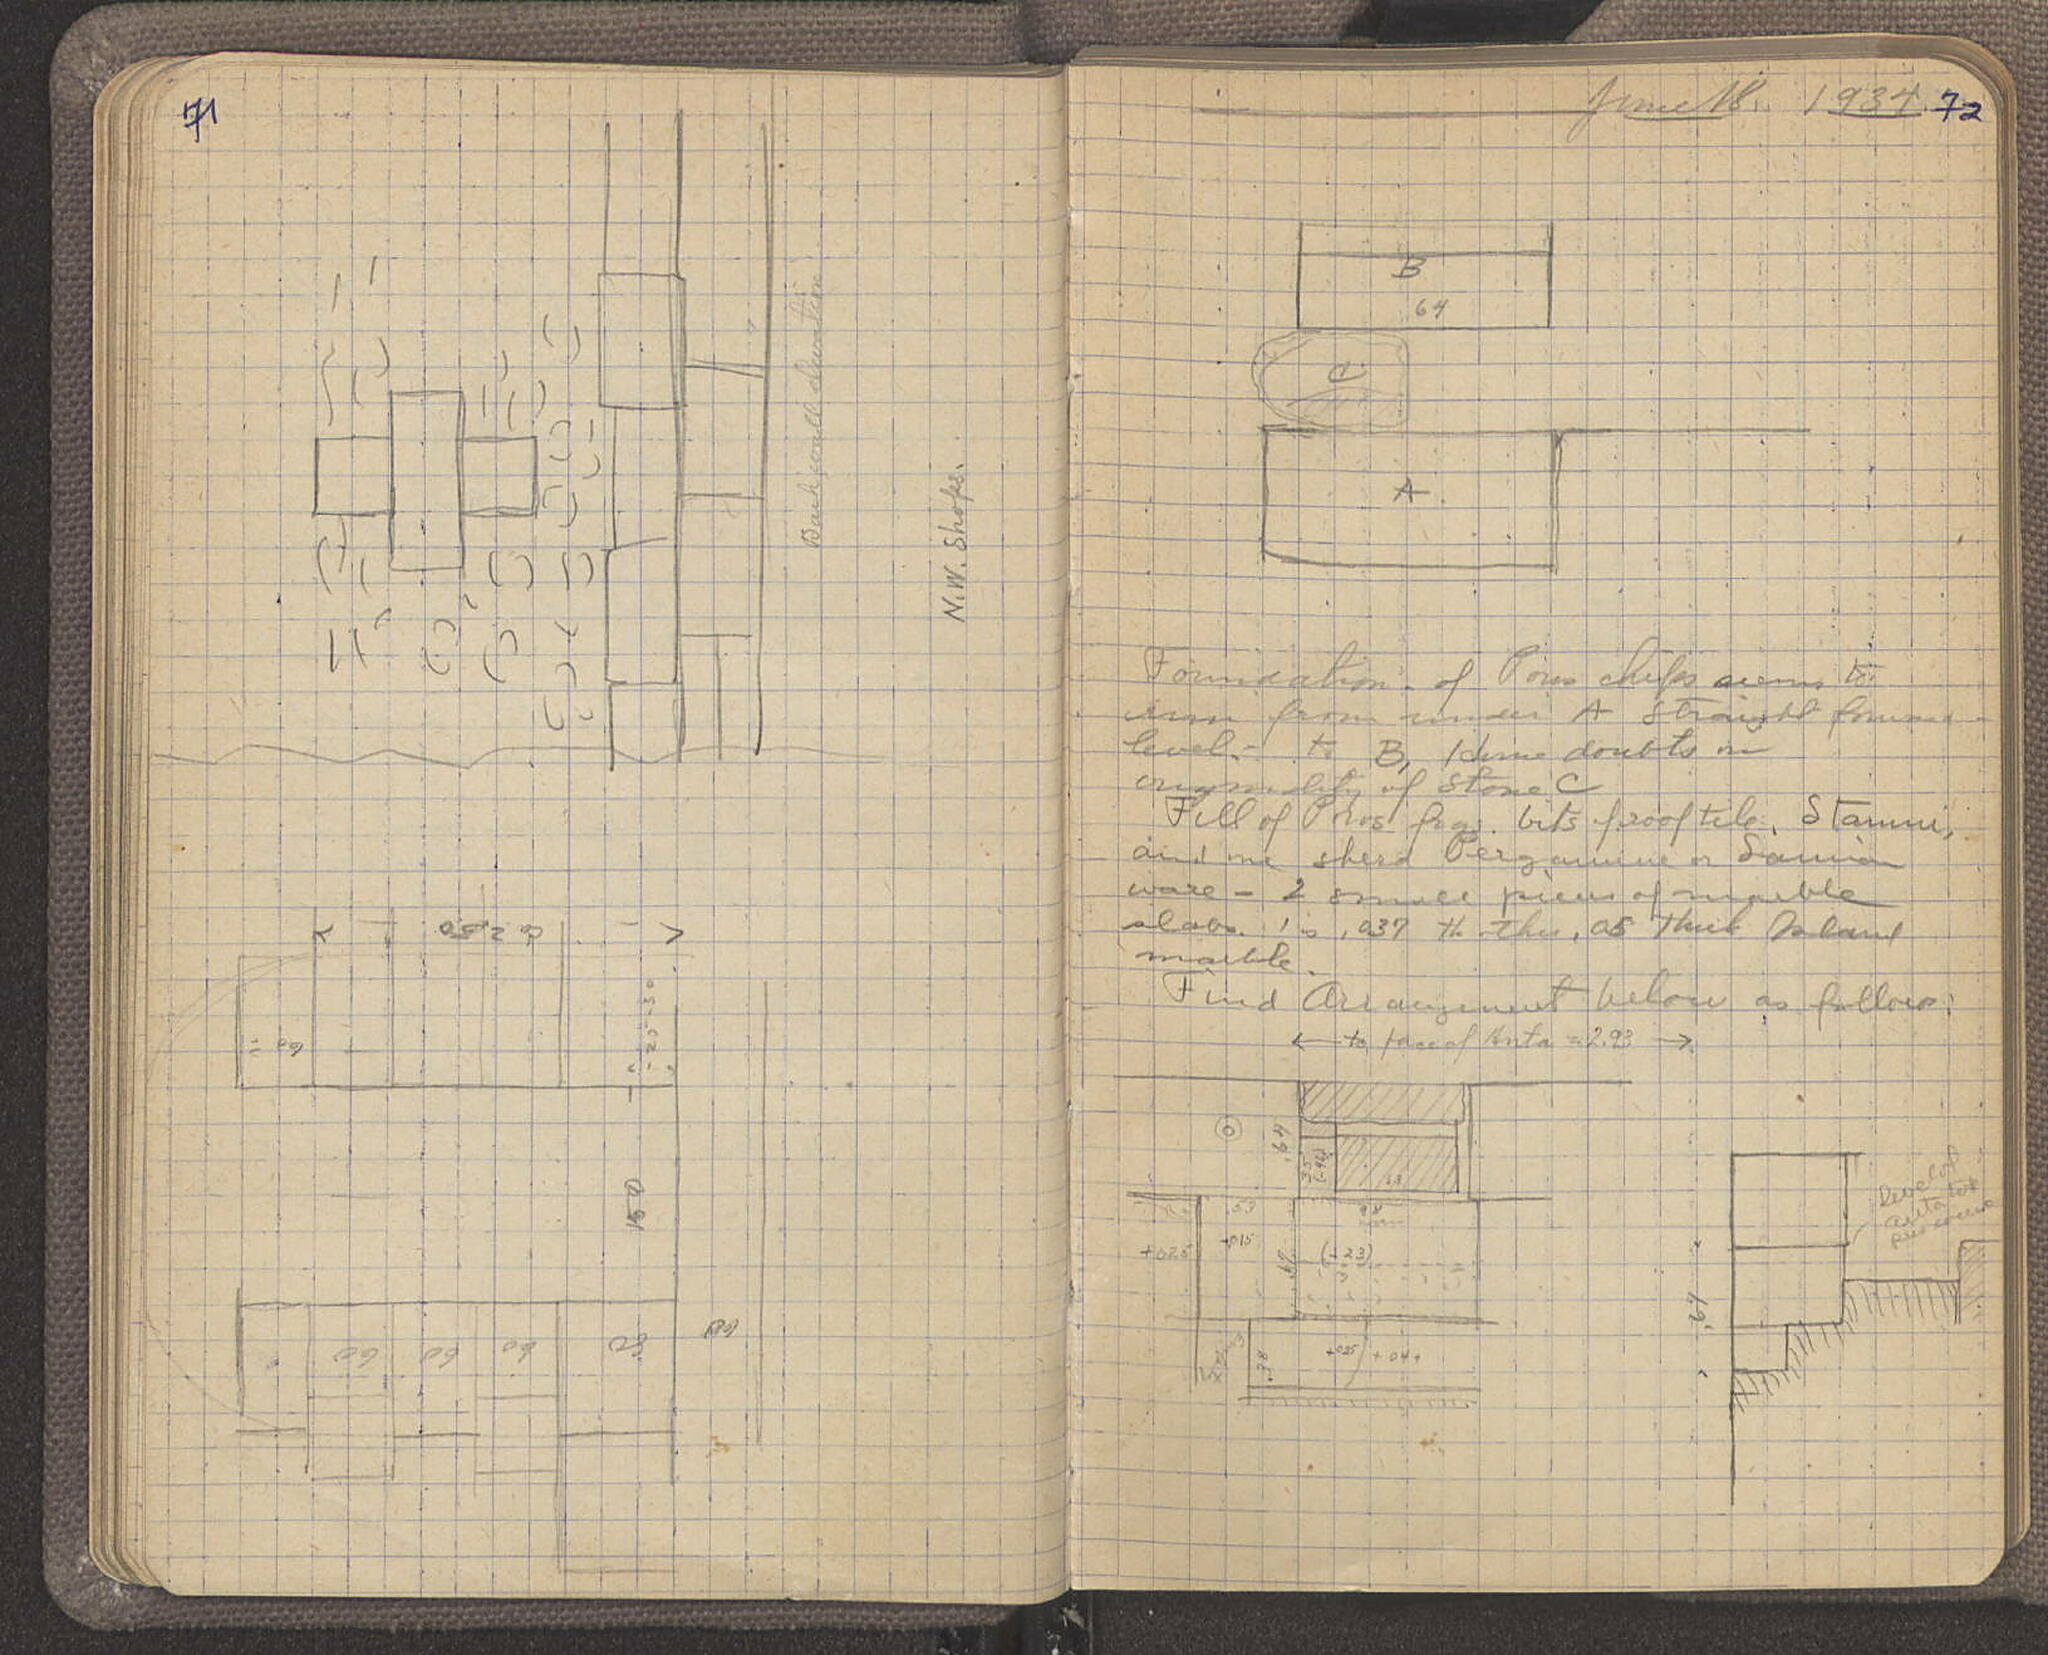 71
Back wall elevation
N.W. Shops.
60
25-30
150
60
60
60
80
June 18. 1934 72
B
64
C
A
Foundation of Poros chips seems to
run from under A straight
level - to B, doubts on
originality of stone C
Fill of Poros frag. bits roof tile, Stamni,
and one sherd Pergamene or Samian
ware - 2 small pieces of marble
slabs. 1 is .037 th other .05 thick Island
marble.
Find Arrangement below as follows:
to face of Anta = 2.93
.64
.35
.53
+.025
+.015
.67
(-.23)
.38
+.025
+.04
.67
Level of
anta